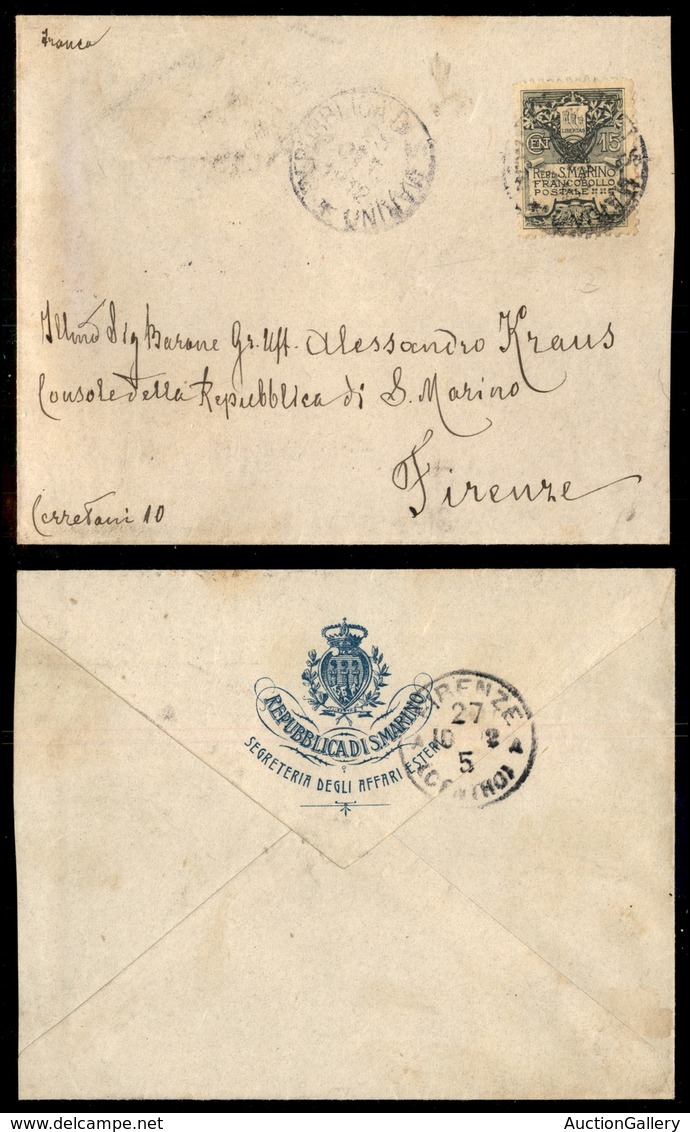 franco
REPUBBLICA DI S. MARINO
LIBERTAS
CENT 15
REPB. S. MARINO
FRANCOBOLLO
POSTALE
Illmo Sig Barone Gr. Uff. Alessandro Kraus
Console della Repubblica di S. Marino
Firenze
Cerretani 10
REPUBBLICA DI S. MARINO
SEGRETERIA DEGLI AFFARI ESTERI
FIRENZE
27
5
www.delcampe.net
AuctionGallery